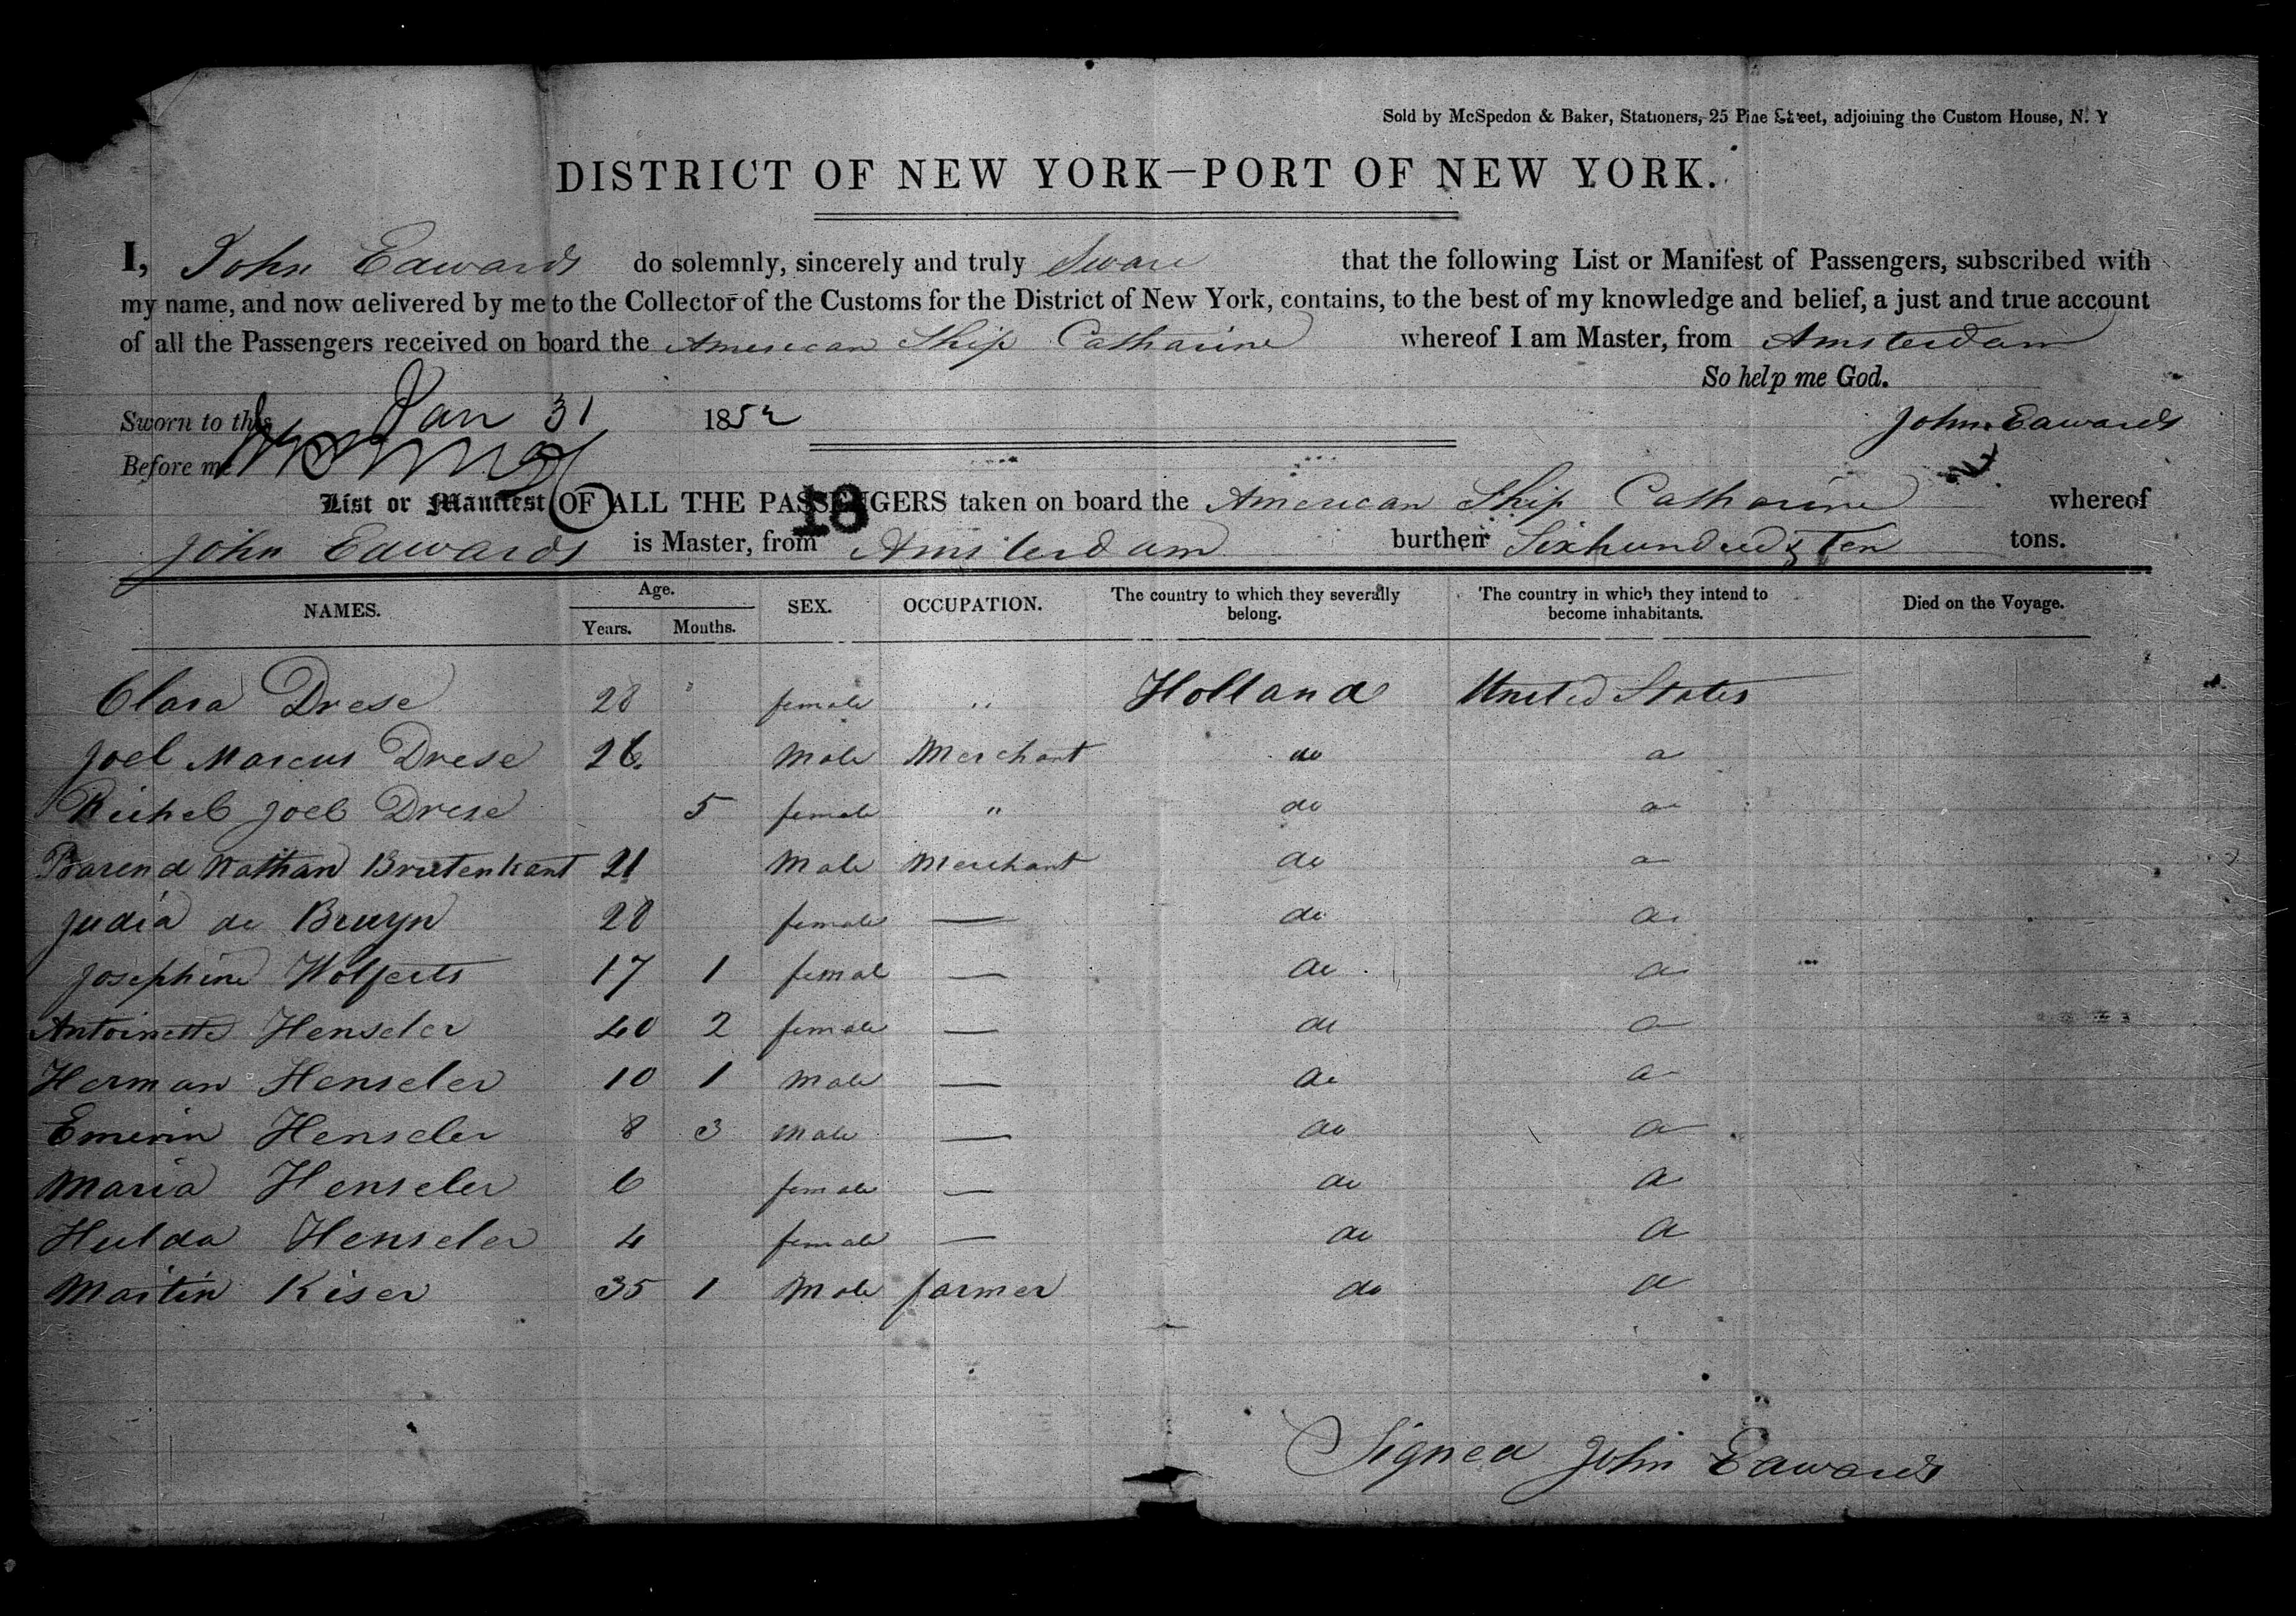 Sold by McSpedon & Baker, Stationers, 25 Pine Street, adjoining the Custom House, N. Y
DISTRICT OF NEW YORK—PORT OF NEW YORK.
I, John Edwards do solemnly, sincerely and truly Sware that the following List or Manifest of Passengers, subscribed with
my name, and now delivered by me to the Collector of the Customs for the District of New York, contains, to the best of my knowledge and belief, a just and true account
of all the Passengers received on board the American Ship Catharine whereof I am Master, from Amsterdam
So help me God.
Sworn to this Jan 31 1852 John Edwards
Before me
List or Manifest OF ALL THE PASSENGERS taken on board the American Ship Catharine whereof
18
John Edwards is Master, from Amsterdam burthen Sixhundred & Ten tons.
NAMES. Age. Years. Months. SEX. OCCUPATION. The country to which they severally belong. The country in which they intend to become inhabitants. Died on the Voyage.
Clara Drese 28 " female " Holland United States
Joel Marcus Drese 26 Male Merchant do a
Joel Drese 5 female " do a
Barend Nathan 21 Male Merchant do a
Judia de Bruyn 28 female — do a
Josephine Wolferts 17 1 femal — do a
Antoinette Henseler 40 2 female — do a
Herman Henseler 10 1 Male — do a
Henseler 8 3 Male — do a
Maria Henseler 6 female — do a
Hulda Henseler 4 female — do a
Martin Kiser 35 1 Male farmer do a
Signed John Edwards